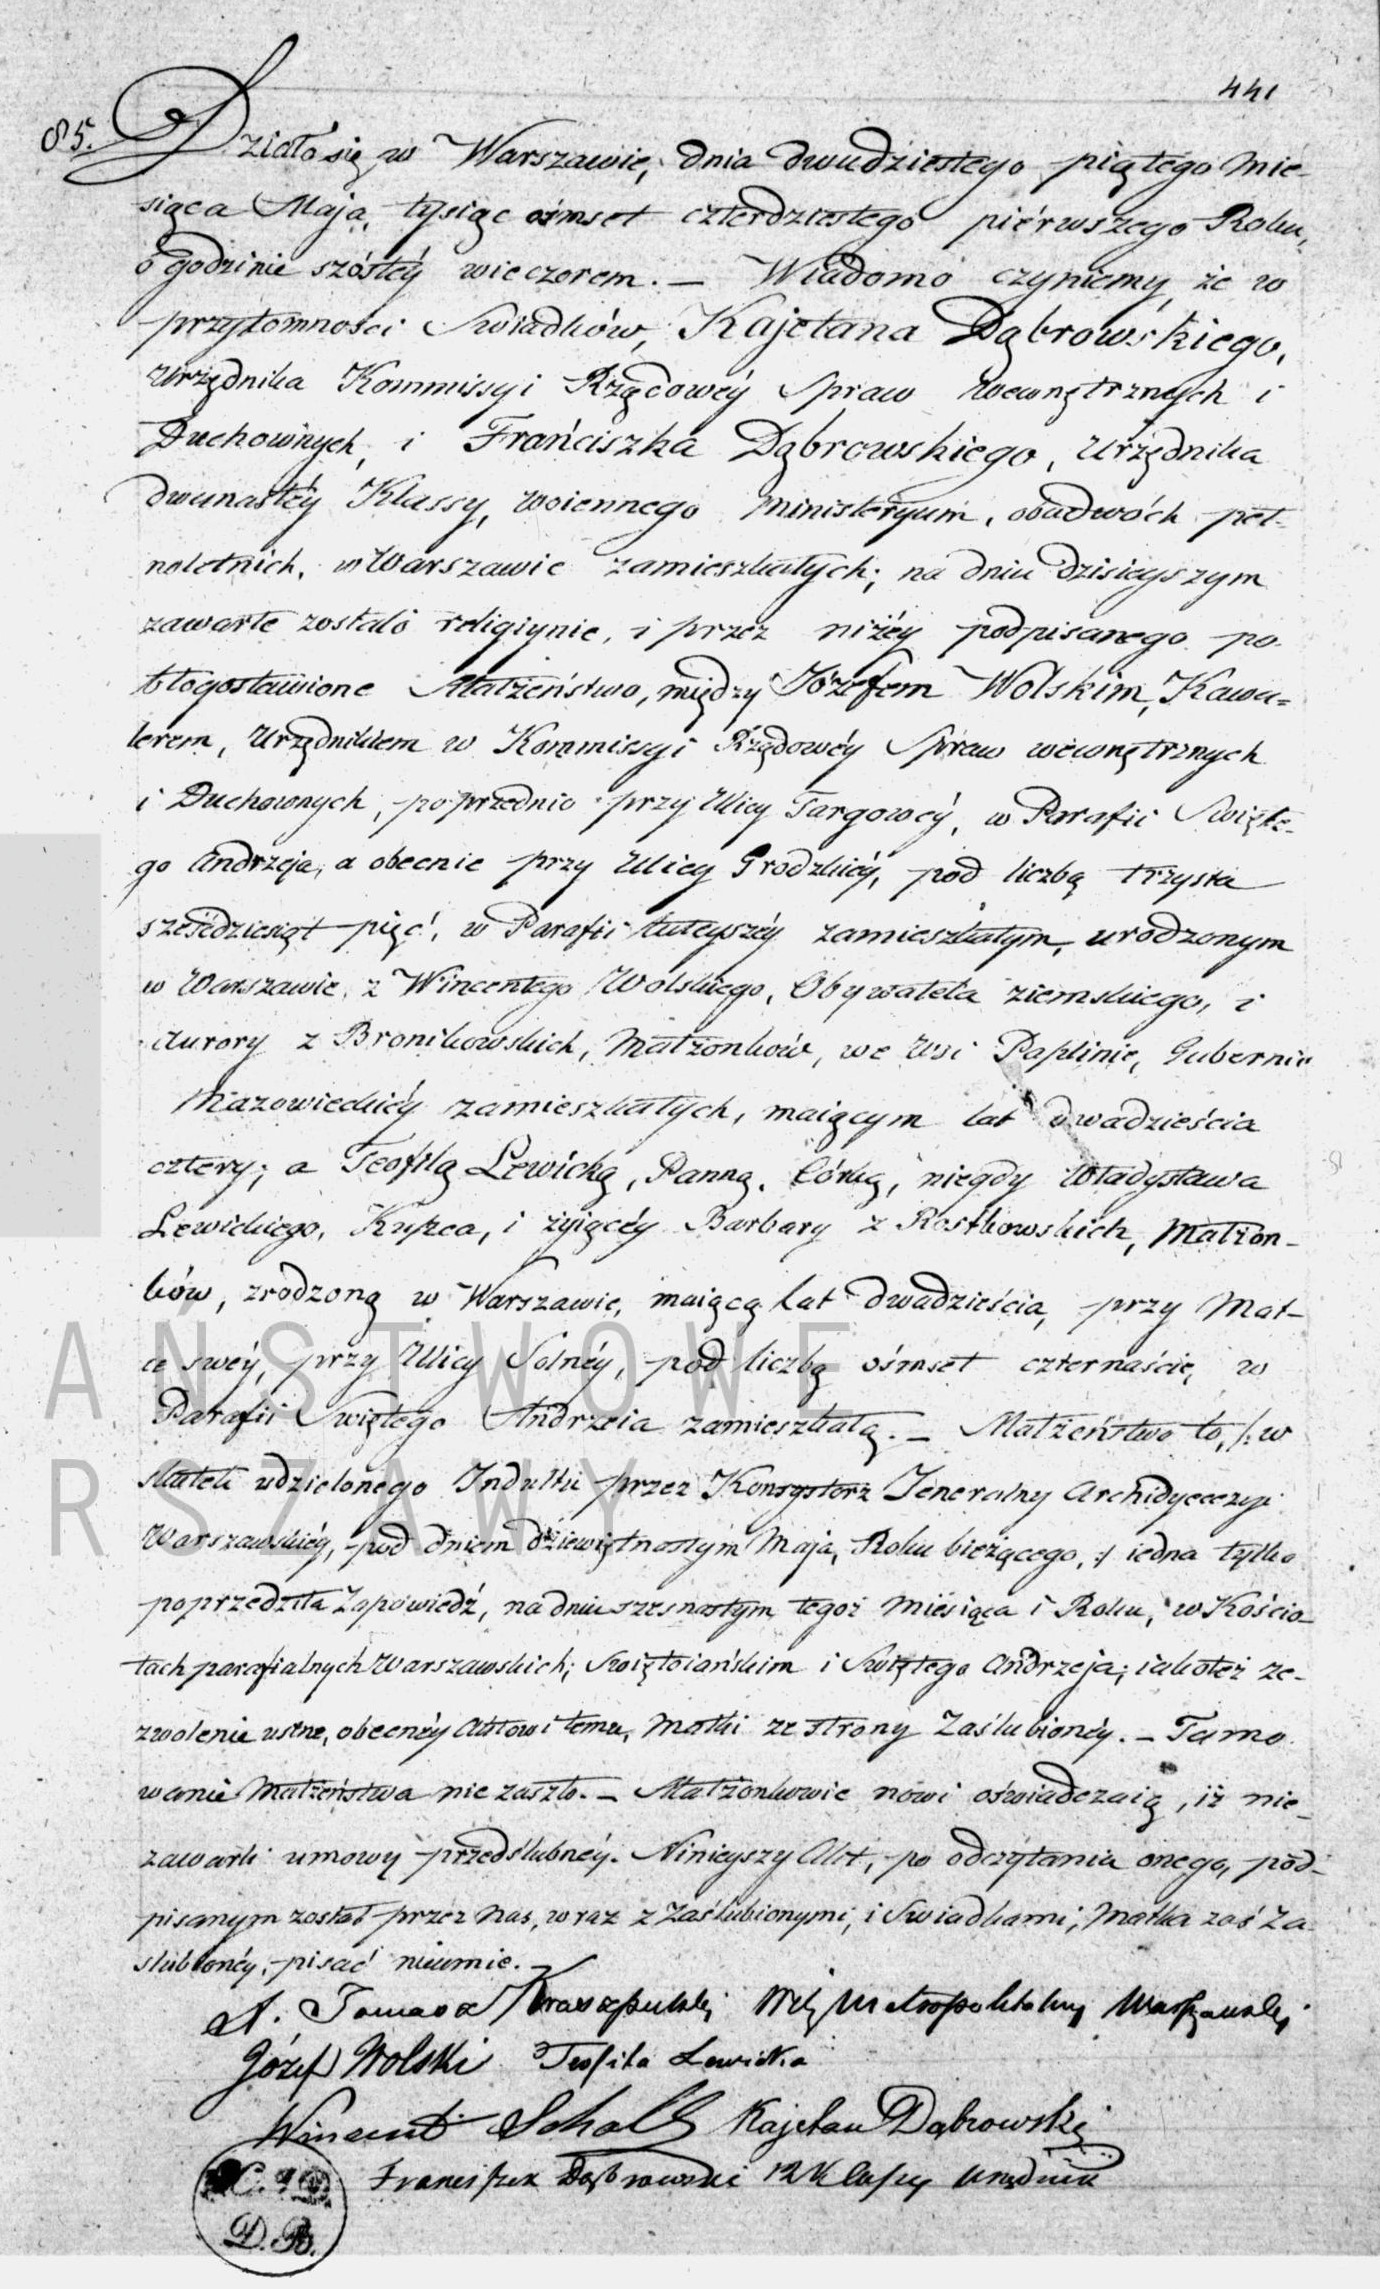 441
85. Działo się w Warszawie, dnia dwudziestego piątego Mie-
siąca Maja, tysiąc ośmset czterdziestego piérwszego Roku,
o godzinie szóstéy wieczorem. — Wiadomo czyniemy, że w
przytomności Swiadków, Kajetana Dąbrowskiego,
Urzędnika Kommissyi Rządowéy Spraw Wewnętrznych i
Duchownych, i Franciszka Dąbrowskiego, Urzędnika
dwunastéy Klassy, woiennego Ministeryum, obudwóch peł-
noletnich, w Warszawie zamieszkałych; na dniu dzisieyszym
zawarte zostało religiynie, i przez niżéy podpisanego po-
błogosławione Małżeństwo, między Józefem Wolskim, Kawa-
lerem, Urzędnikiem w Kommissyi Rządowéy Spraw wewnętrznych
i Duchownych, poprzednio przy Ulicy Targowéy, w Parafii Święte-
go Andrzeja, a obecnie przy Ulicy Grodzkiéy, pod liczbą trzysta
sześćdziesiąt pięć, w Parafii tuteyszéy zamieszkałym, urodzonym
w Warszawie, z Wincentego Wolskiego, Obywatela ziemskiego, i
Aurory z Bronikowskich, Małżonków, we Wsi Paplinie, Gubernii
Mazowieckiéy zamieszkałych, maiącym lat dwadzieścia
cztery; a Teofilą Lewicką, Panną, Córką, niegdy Władysława
Lewickiego, Kupca, i żyiącéy Barbary z Rostkowskich, Małżon-
ków, zrodzoną w Warszawie, maiącą lat dwadzieścia, przy Mat-
ce swéy, przy Ulicy Solnéy, pod liczbą ośmset czternaście, w
Parafii Swiętego Andrzeia zamieszkałą. — Małżeństwo to, /: w
skutek udzielonego Indultu przez Konsystorz Jeneralny Archidyecezyi
Warszawskiéy, pod dniem dziewiętnastym Maja, Roku bieżącego, :/ iedna tylko
poprzedziła Zapowiedź, na dniu szesnastym tegoż Miesiąca i Roku, w Kościo-
łach parafialnych Warszawskich; Swiętoiańskim i Swiętego Andrzeja; iakoteż ze-
zwolenie ustne, obecnéy Aktowi temu, Matki ze strony Zaślubionéy. — Tamo
wanie Małżeństwa nie zaszło. — Małżonkowie nowi oświadczaią, iż nie
zawarli umowy przedślubnéy. Ninieyszy Akt, po odczytaniu onego, pod-
pisanym został przez Nas, wraz z Zaślubionymi, i Swiadkami; Matka zaś Za
ślubionéy, pisać nieumie. —
X. Tomasz Metropolitalny Warszawski
Józef Wolski Teofila Lewicka
Wincent Kajetan Dąbrowski
Franciszek Dąbrowski 12 Klassy Urzędnik
D. B.
AŃSTWOWE
RSZAWY